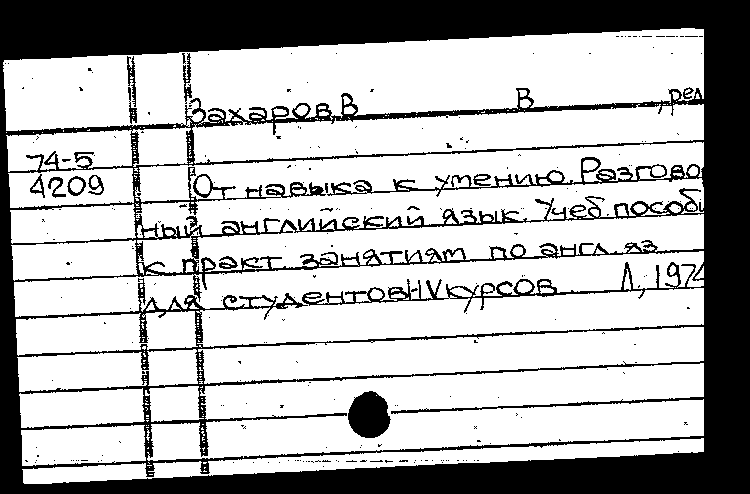 Захаров, В В , ред
74-5
4209 От навыка к умению. Разговор
ный английский язык. Учеб. пособи
к практ. занятиям по англ. яз.
для студентов курсов. Л., 1974